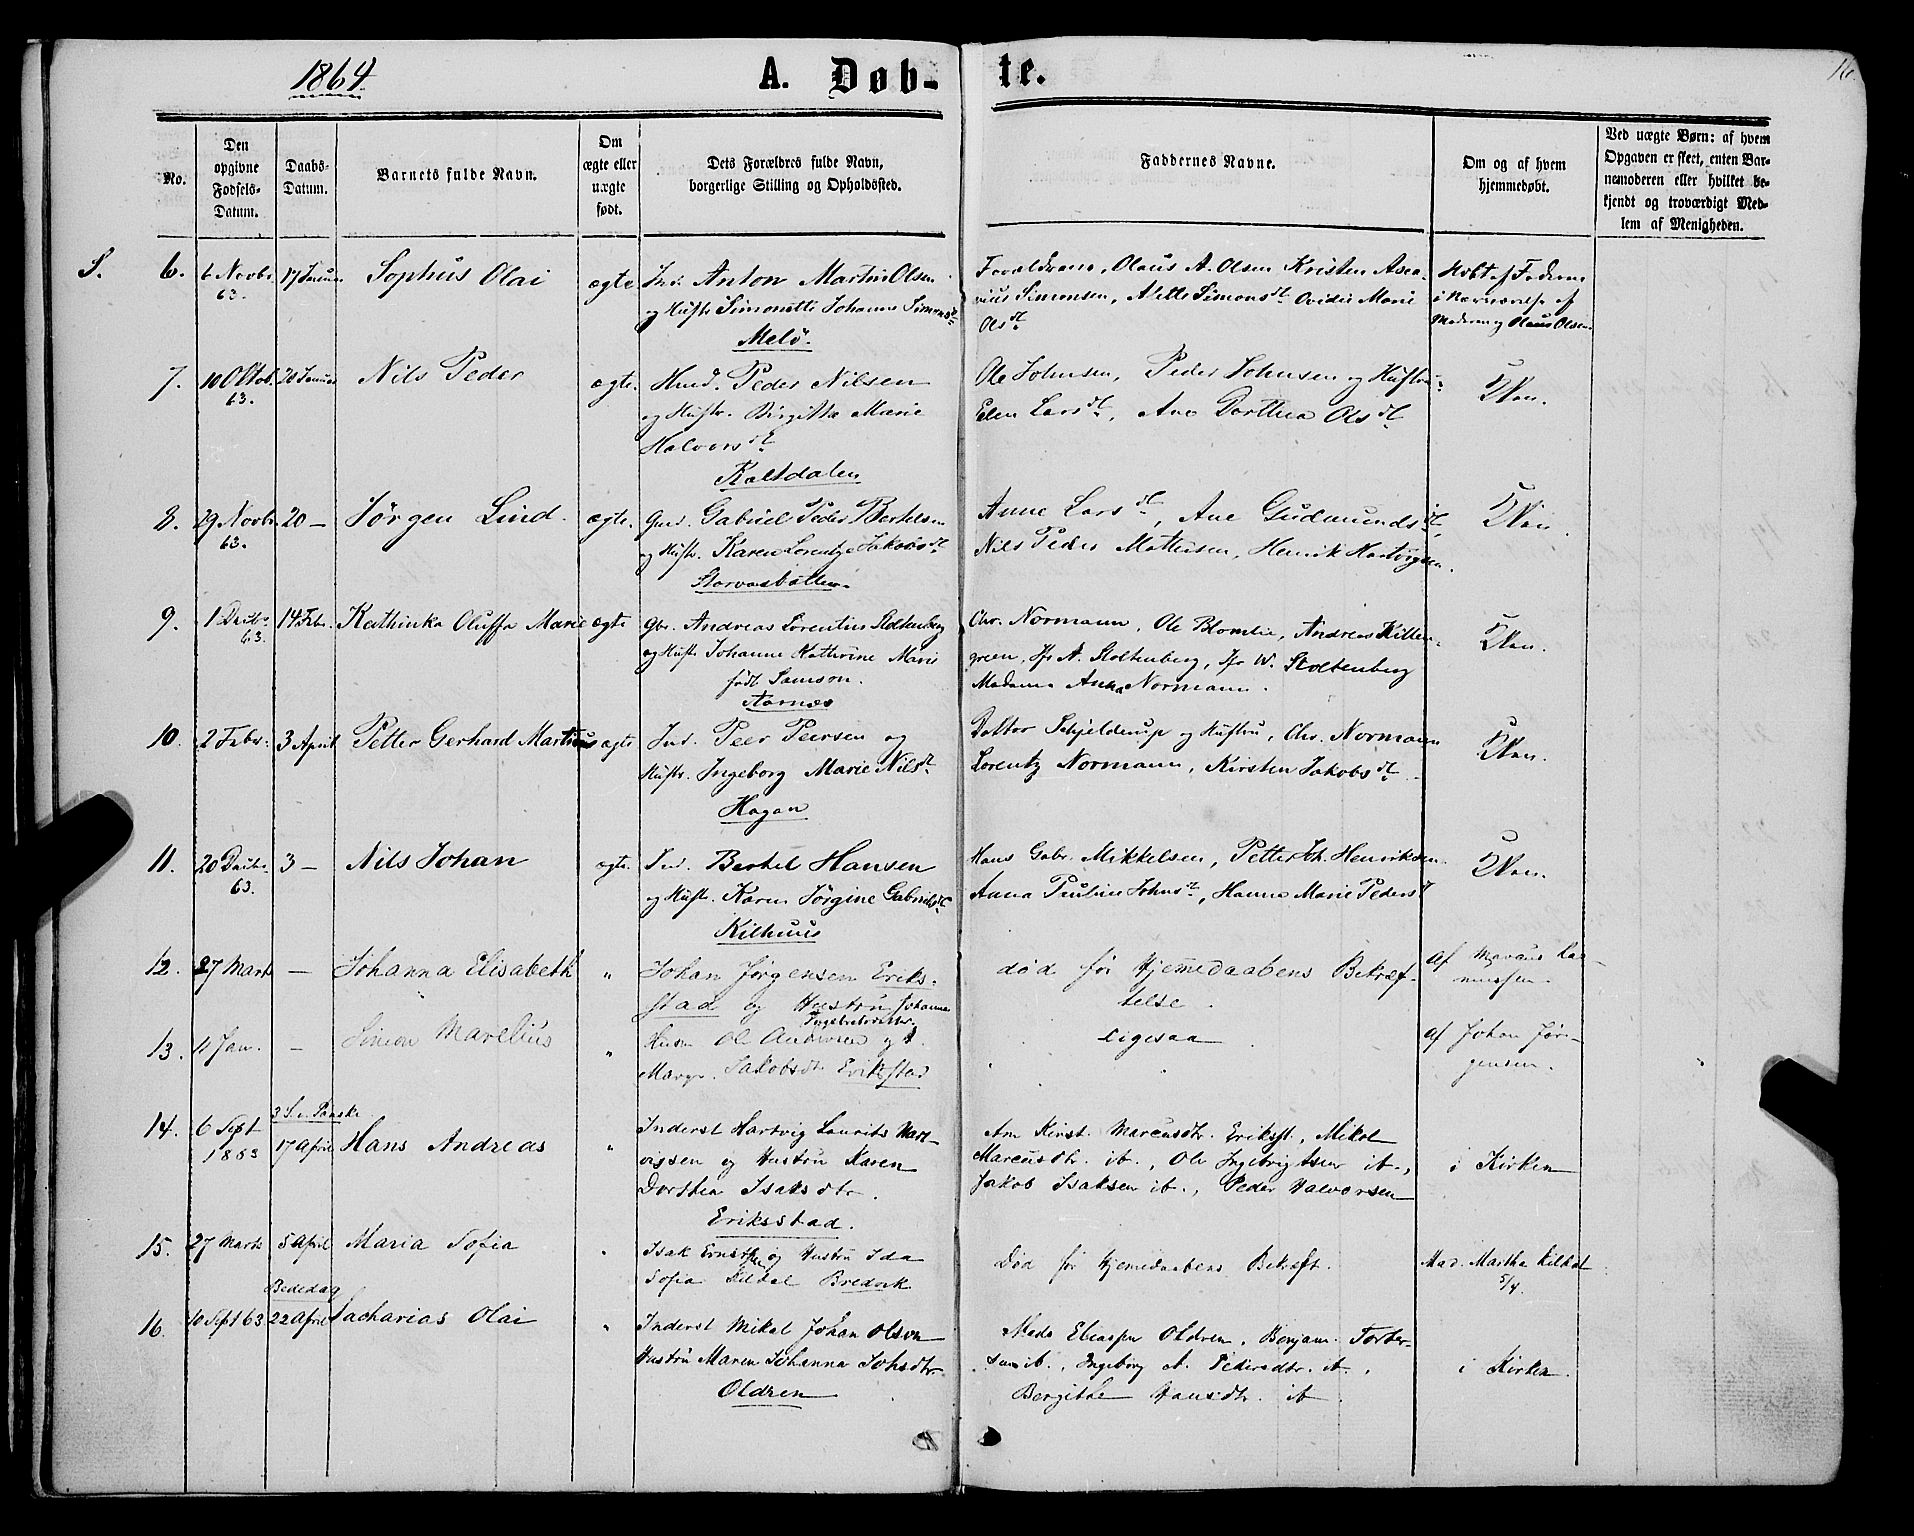 1864
A. Døb-
te.
16
No.
Den opgivne Fødsels-Datum.
Daabs-Datum.
Barnets fulde Navn.
Om ægte eller uægte født.
Dets Forældres fulde Navn, borgerlige Stilling og Opholdssted.
Faddernes Navne.
Om og af hvem hjemmedøbt.
Ved uægte Børn: af hvem Opgaven er skeet, enten Barnemoderen eller hvilket bekjendt og troværdigt Medlem af Menigheden.
S. 6. 6 Novbr 63. 17 Januar Sophus Olai ægte Ind. Anton Martin Olsen
og Hustr Simonette Johanne Simonsdt
Melö.
Forældrene, Olaus A. Olsen Kristen Asca-
nius Simonsen, Mette Simonsdt Ovidie Marie
Olsdt
Hdbt af Faderen
i Nærværelse af
Moderen og Olaus Olsen
7. 10 Oktob. 63. 20 Januar Nils Peder ægte. Hmd. Peder Nilsen
og Hustr. Birgitta Marie
Halvorsdt
Kaltdalen
Ole Johnsen, Peder Johnsen og Hustru
Elen Larsdt, Ane Dorthea Olsdt
8. 29 Novbr. 63. 20 — Jörgen Lind. ægte. Gmd. Gabriel Peder Bertelsen
og Hustr. Karen Lorentze Jakobsdt
Storvasbotten.
Anne Larsdt, Ane Gudmundsdt,
Nils Peder Mathisen, Henrik Hartvigsen.
9. 1 Decbr. 63. 14 Febr. Kathinka Oluffa Marie ægte Gbr. Andreas Lorentius Stoltenberg
og Hustr Johanne Katherine Marie
født Samson.
Aarnæs
Chr. Normann, Ole Blomlie, Andreas Killen-
green, Hr A. Stoltenberg, Jfr W. Stoltenberg
Madame Anna Normann.
10. 2 Febr. 3 April Petter Gerhard Martinus ægte Ind. Peer Peersen og
Hustr. Ingeborg Marie Nilsdt
Hagan
Doktor Schjelderup og Hustru, Chr. Normann
Lorentz Normann, Kirsten Jakobsdt
11. 20 Decbr. 63. 3 — Nils Johan ægte. Ind. Bertel Hansen
og Hustr. Karen Jörgine Gabrielsdt
Kilhuus
Hans Gabr. Mikkelsen, Petter Joh. Henriksen.
Anna Pauline Johnsdt, Hanna Marie Pedersdt
12. 27 Marts — Johanna Elisabeth " Johan Jørgensen Eriks-
stad og Hustru Johanna
Ingebrigtsdtr.
død før Hjemmedaabens Bekræf-
telse.
af Marcus Ras-
mussen.
13. 11 Jan. — Simon Marelius " Husm Ole Andersen og
Margr. Jakobsdt. Erikstad
ligesaa
af Johan Jør-
gensen.
14. 6 Sept 1863 3 S. e. Paaske 17 April Hans Andreas " Inderst Hartvig Laurits Hart-
vigsen og Hustru Karen
Dorthea Isaksdtr.
Eriksstad.
Ane Kirst. Marcusdtr. Eriksst., Mikal
Marcusdtr. ib., Ole Ingebrigtsen ib.,
Jakob Isaksen ib., Peder Halvorsen
i Kirken
15. 27 Marts 5 April Maria Sofia " Isak Ernstsen og Hustru Ida
Sofia Kildal Bredvik
Død før Hjemmedaabens Bekræft.
Mad. Martha Kildal
5/4.
16. 10 Sept 63 Bededag 22 April Zacharias Olai " Inderst Mikal Johan Olson
Hustru Maren Johanna Johsdtr.
Oldren
Mads Eliassen Oldren, Benjam. Torber-
sen ib., Ingeborg A. Pedersdtr. ib.,
Bergithe Hansdtr. ib.
i Kirken.